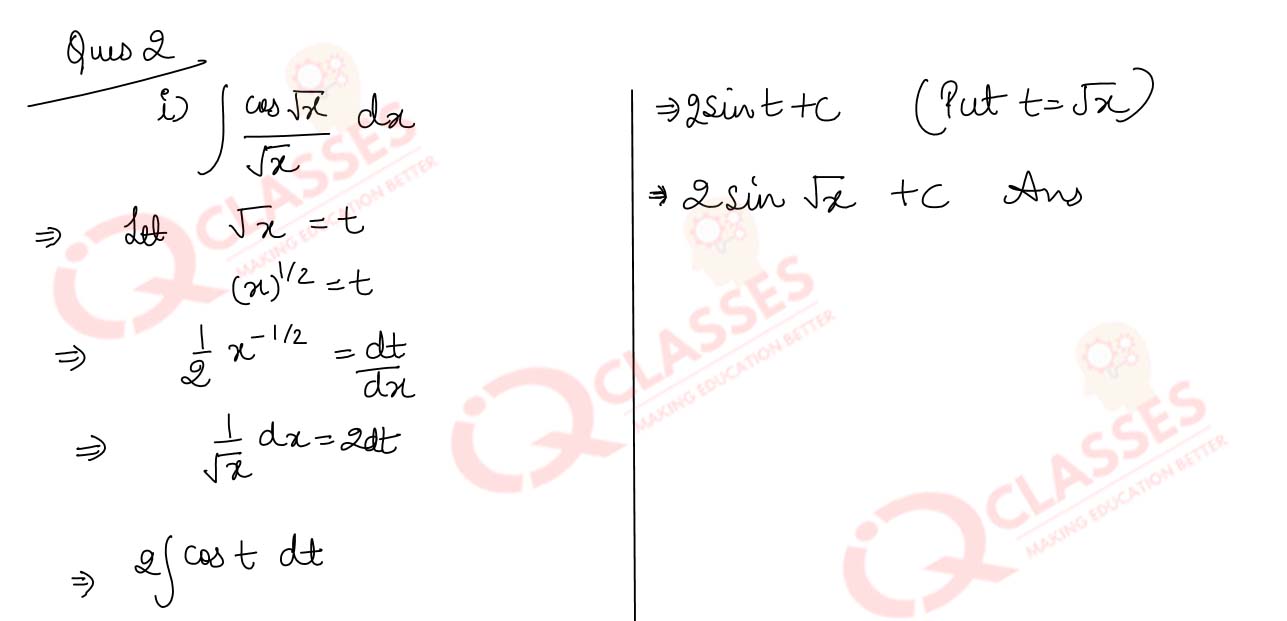 Ques 2
i) ∫ cos √x / √x dx
⇒ Let √x = t
(x)^1/2 = t
⇒ 1/2 x^-1/2 = dt/dx
⇒ 1/√x dx = 2dt
⇒ 2∫ cos t dt
⇒ 2 sin t + c (Put t = √x)
⇒ 2 sin √x + c Ans
iQ CLASSES
MAKING EDUCATION BETTER
iQ CLASSES
MAKING EDUCATION BETTER
iQ CLASSES
MAKING EDUCATION BETTER